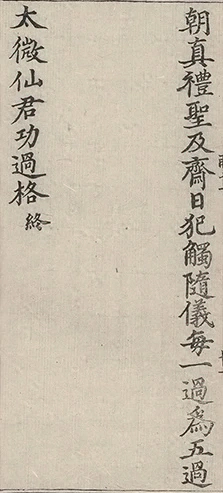 朝真禮聖及齋日犯觸隨儀每一過爲五過
太微仙君功過格終